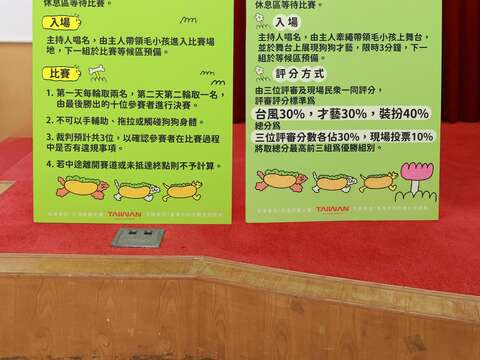 息區等待比賽。
入場
主持人唱名，由主人帶領毛小孩進入比賽場
地，下一組於比賽等候區預備。
比賽
1. 第一天每輪取兩名，第二天第二輪取一名，
由最後勝出的十位參賽者進行決賽。
2. 不可以手輔助、拖拉或觸碰狗狗身體。
3. 裁判預計共3位，以確認參賽者在比賽過程
中是否有違規事項。
4. 若中途離開賽道或未抵達終點則不予計算。
TAIWAN
休息區等待比賽。
入場
主持人唱名，由主人牽繩帶領毛小孩上舞台，
並於舞台上展現狗狗才藝，限時3分鐘，下一
組於比賽等候區預備。
評分方式
由三位評審及現場民眾一同評分，
評審評分標準為
台風30%，才藝30%、裝扮40%
總分為
三位評審分數各佔30%，現場投票10%
將取總分最高前三組為優勝組別。
TAIWAN